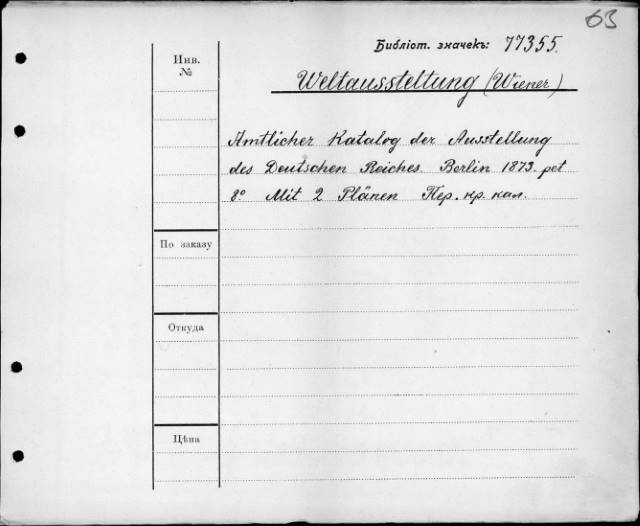 63
Библіот. значекъ: 77355.
Инв. №
Weltausstellung (Wiener)
Amtlicher Katalog der Ausstellung
des Deutschen Reiches. Berlin 1873. pet
8º Mit 2 Plänen Пер. кр. кал.
По заказу
Откуда
Цѣна